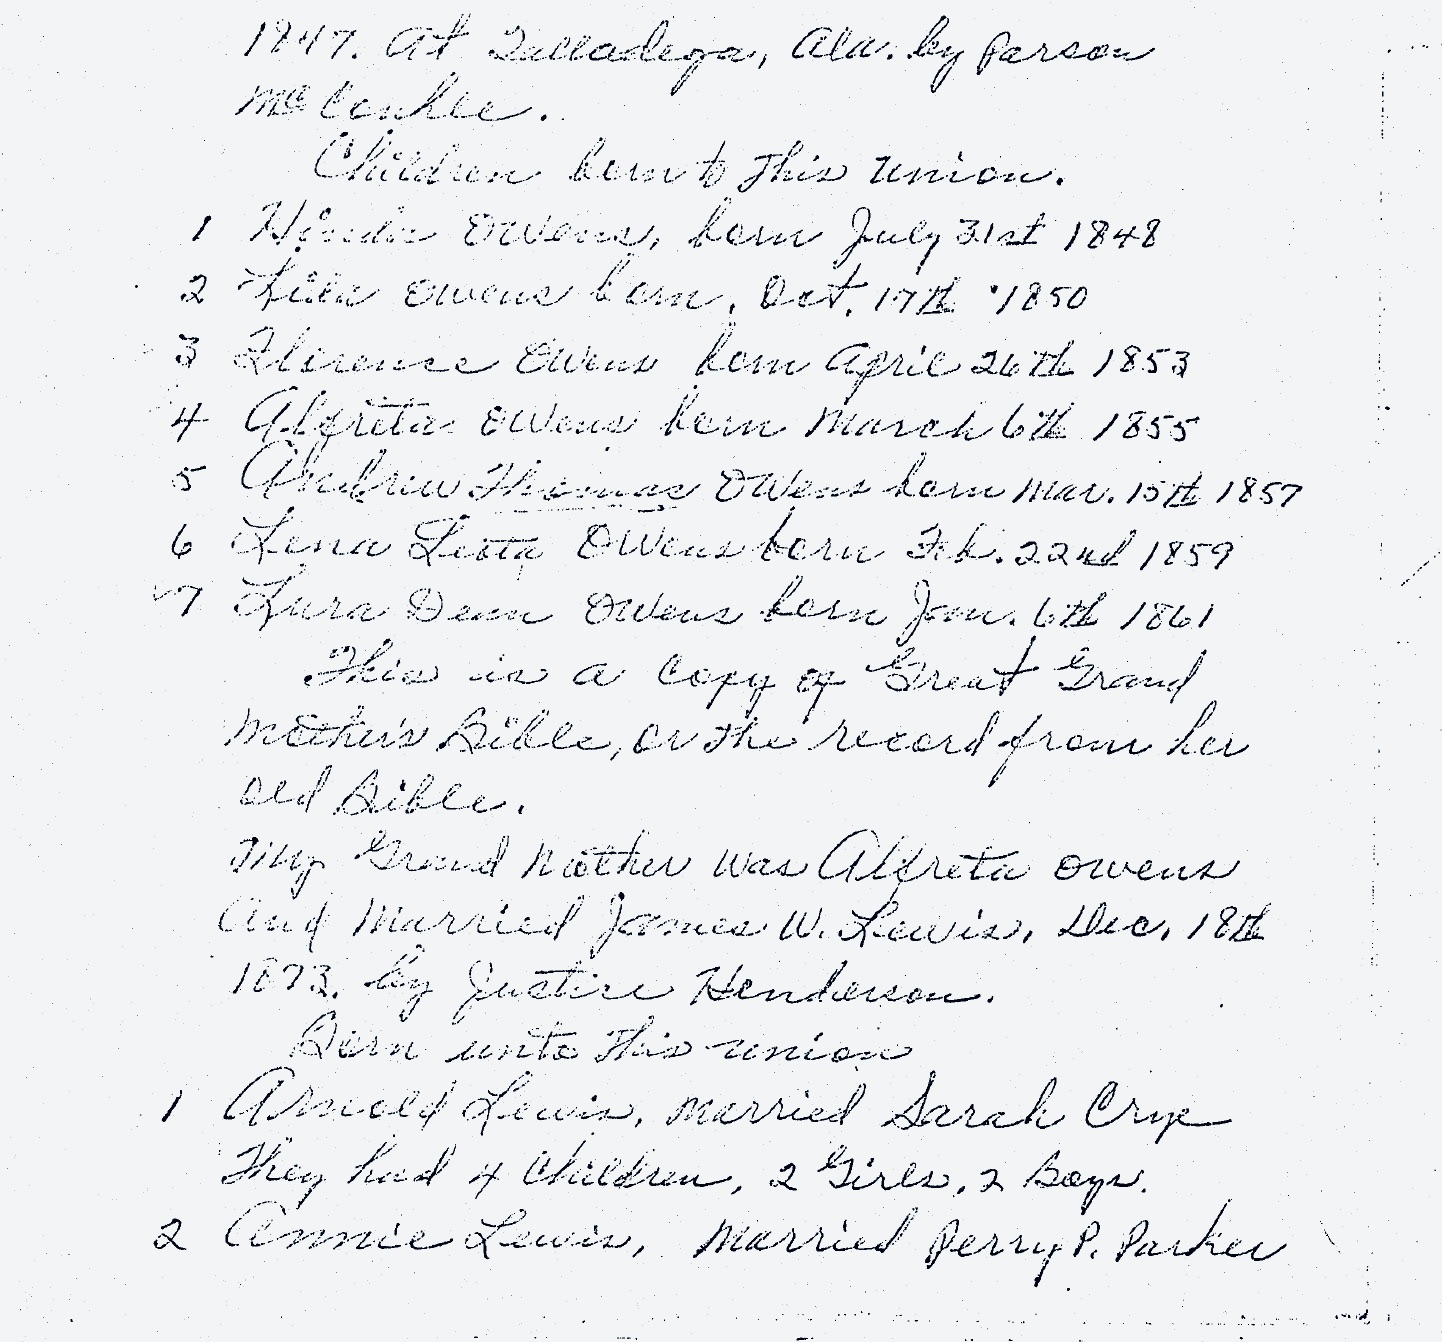 1847. At Talladega, Ala. by Parson
Children born to This Union.
1 Owens, born July 31st 1848
2 Owens born, Oct. 17th 1850
3 Florence Owens born April 26th 1853
4 Alfreta Owens born March 6th 1855
5 Andrew Thomas Owens born Mar. 15th 1857
6 Lena Owens born Feb. 22nd 1859
7 Lura Owens born Jan. 6th 1861
This is a Copy of Great Grand
Mother's Bible, or the record from her
old Bible.
My Grand Mother was Alfreta Owens
And Married James W. Lewis, Dec, 18th
1873. by Justice Henderson.
Born unto This union
1 Arnold Lewis, Married Sarah Crye
They had 4 Children, 2 Girls, 2 Boys.
2 Annie Lewis, Married Perry P. Parker